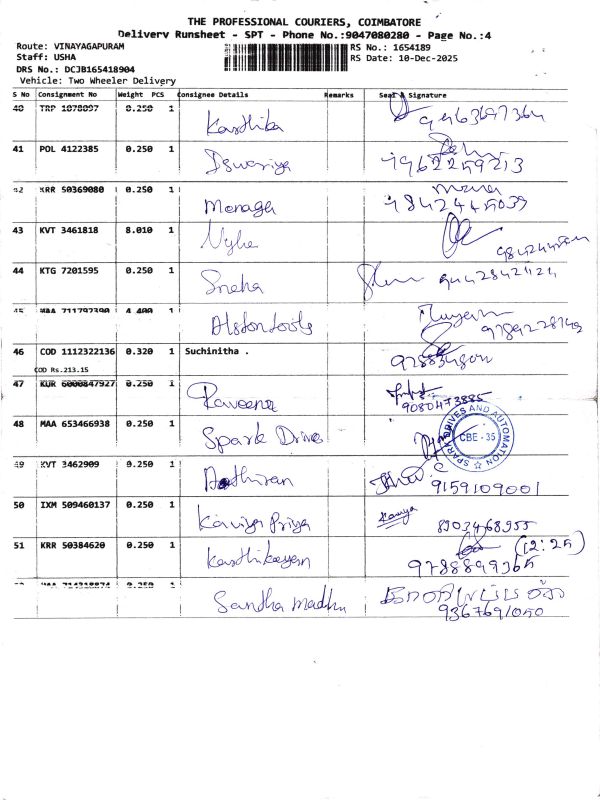 THE PROFESSIONAL COURIERS, COIMBATORE
Delivery Runsheet - SPT - Phone No.:9047080280 - Page No.:4
Route: VINAYAGAPURAM RS No.: 1654189
Staff: USHA RS Date: 10-Dec-2025
DRS No.: DCJB165418904
Vehicle: Two Wheeler Delivery
S No Consignment No Weight PCS Consignee Details Remarks Seal & Signature
40 TRP 1078097 0.250 1 Karthika
41 POL 4122385 0.250 1 Iswariya 9962259213
42 KRR 50369080 0.250 1 Menaga 9842445039
43 KVT 3461818 8.010 1
44 KTG 7201595 0.250 1 Sneha 9442842424
45 MAA 711792390 4.400 1 Alstontools
46 COD 1112322136 0.320 1 Suchinitha .
COD Rs.213.15
47 KUR 6000847927 0.250 1 Raveena 9080473885
48 MAA 653466938 0.250 1 Spark Drive SPARK DRIVES AND AUTOMATION CBE - 35
49 KVT 3462909 0.250 1 9159109001
50 IXM 509460137 0.250 1 Kaviya Priya Kaviya 8903468955
51 KRR 50384620 0.250 1 Karthikeyan (12:25)
9788899365
0.250 1 Santha madhu
9367691050